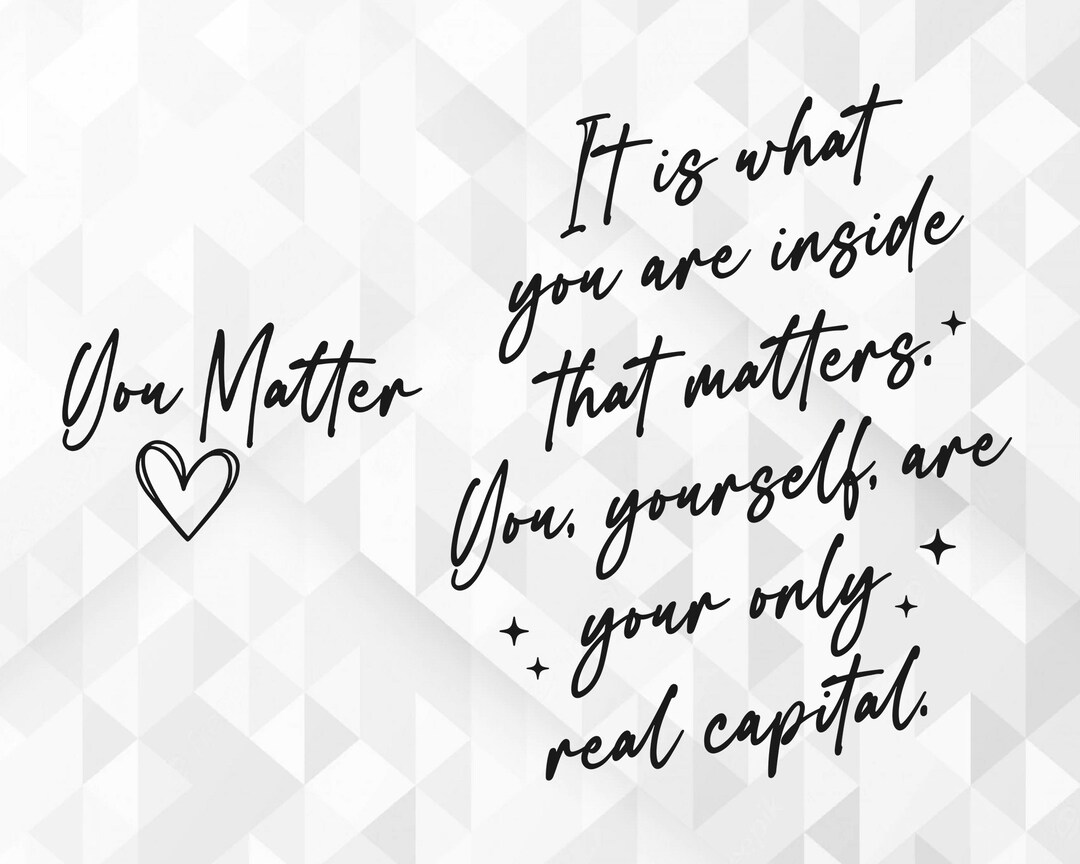 You Matter
It is what
you are inside
that matters.
You, yourself, are
your only
real capital.